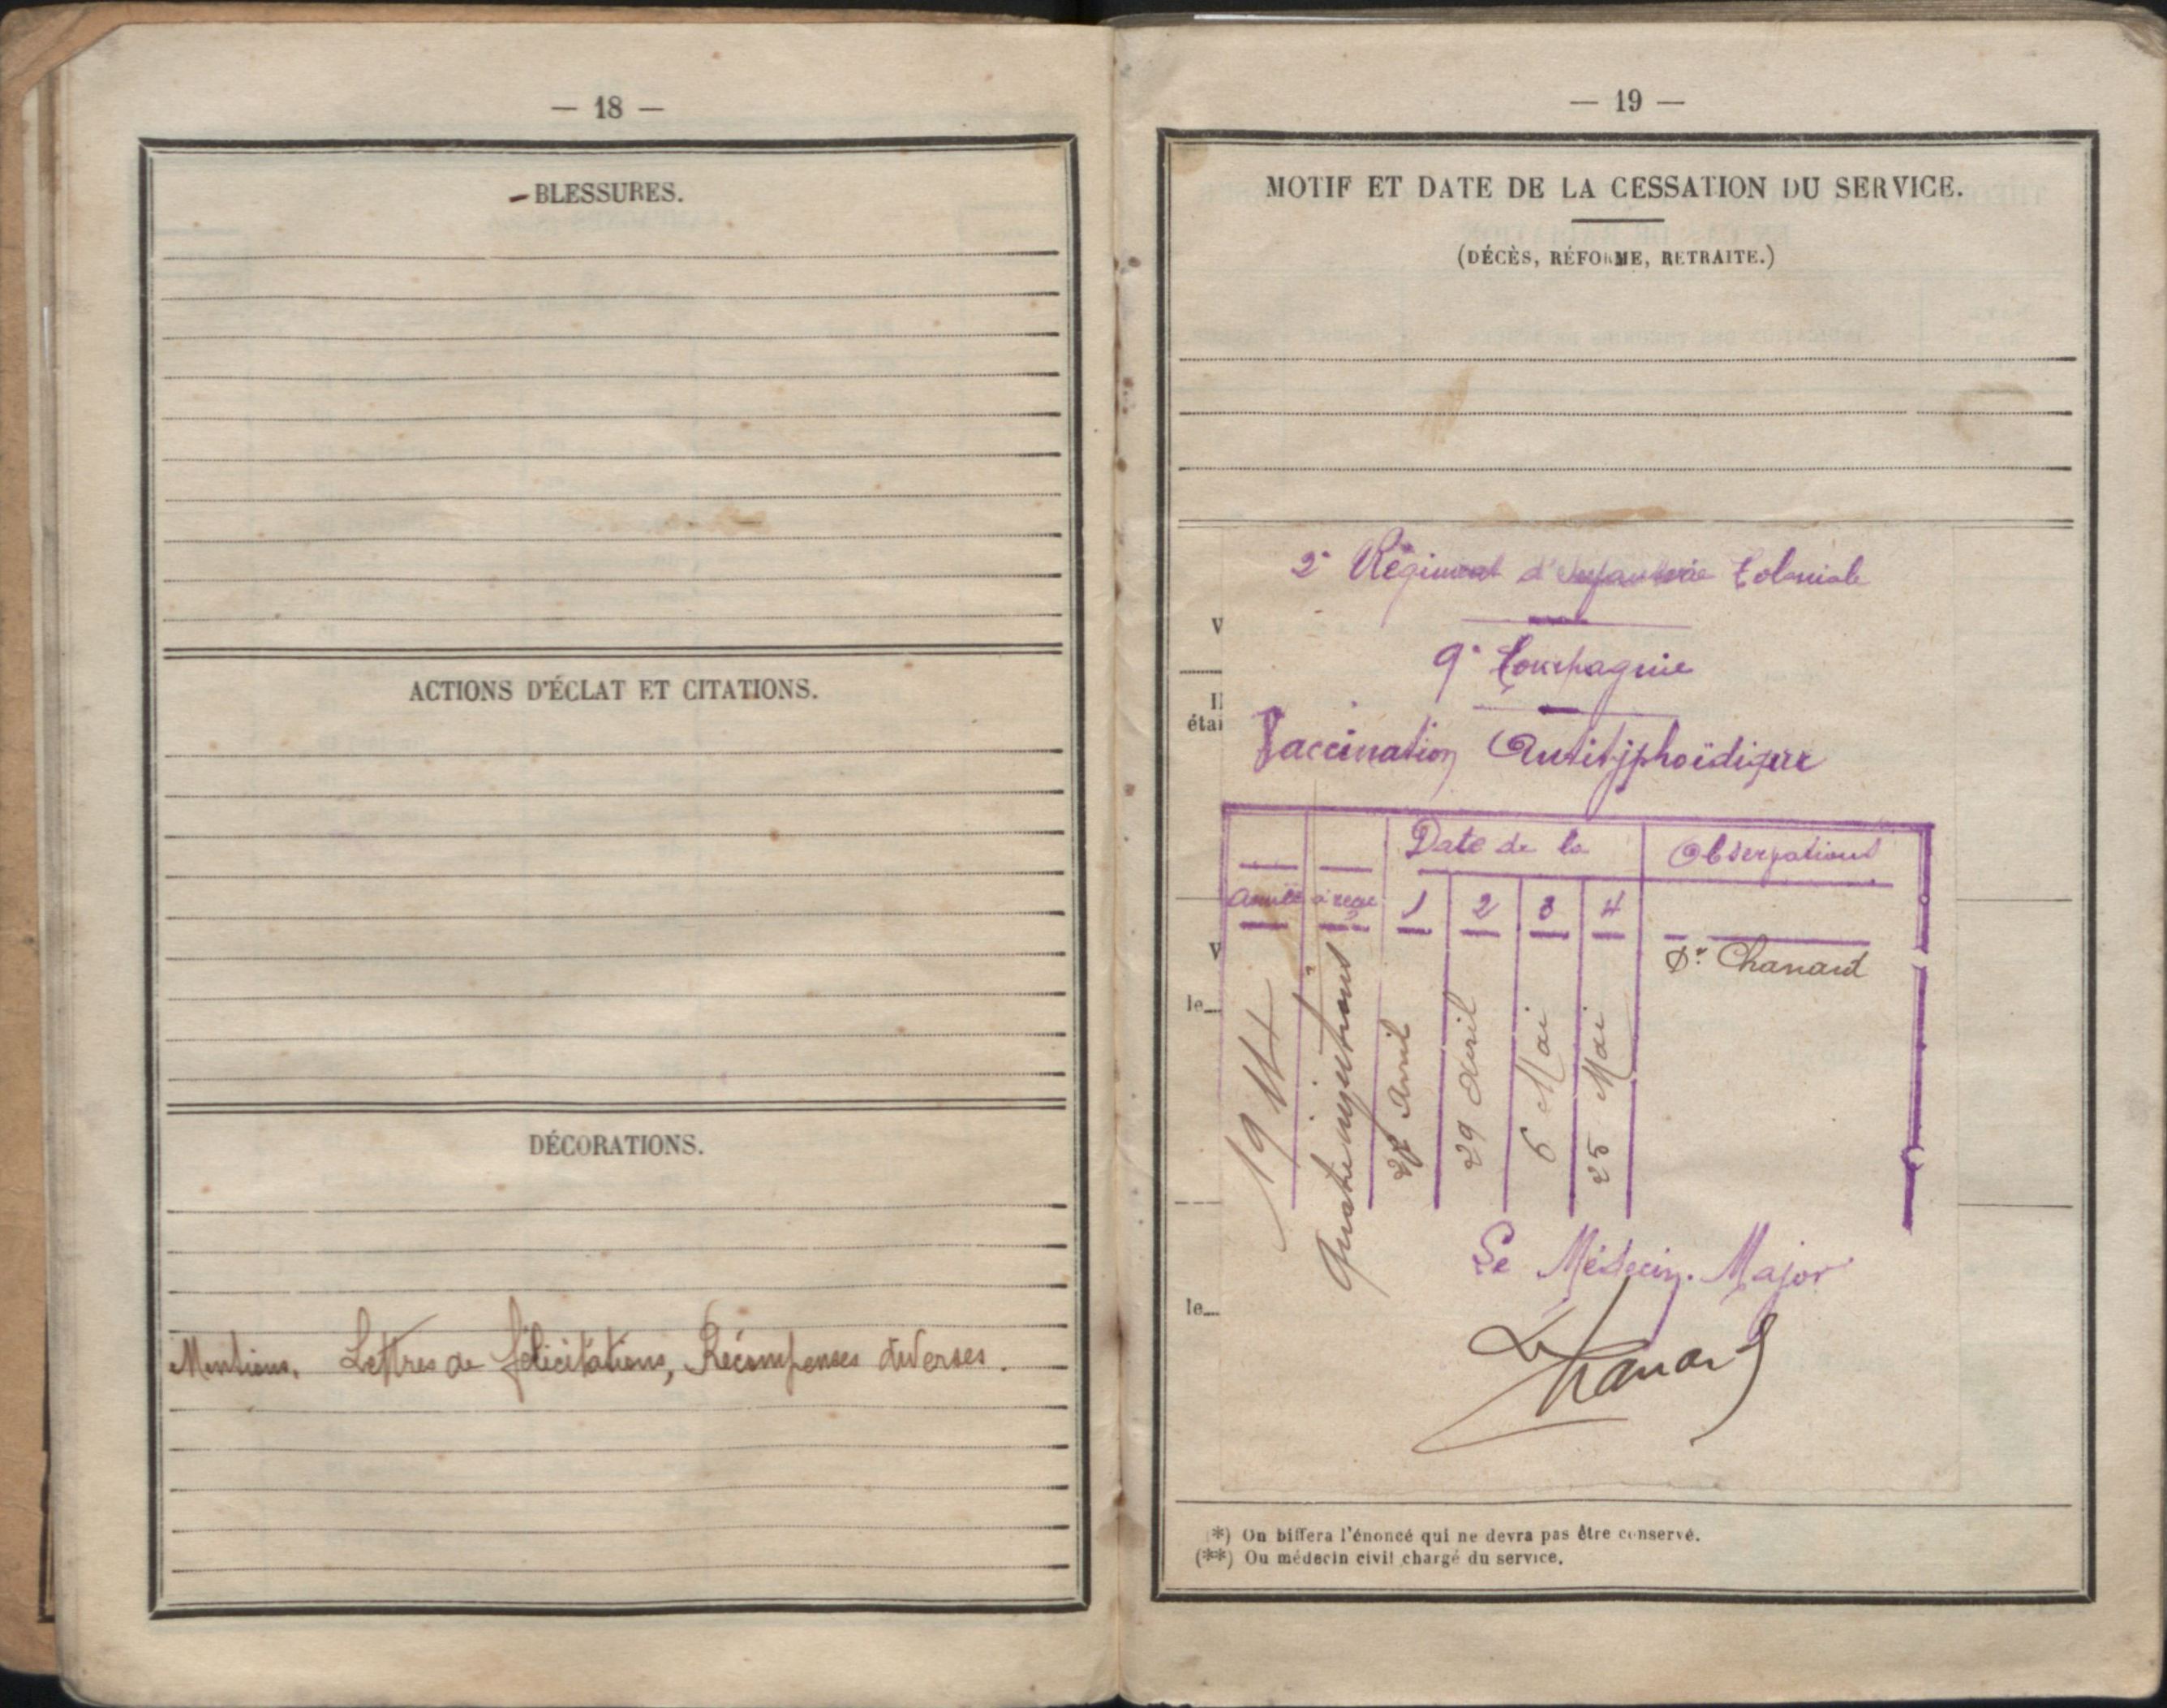 — 18 —
BLESSURES.
ACTIONS D'ÉCLAT ET CITATIONS.
DÉCORATIONS.
Mentions, Lettres de félicitations, Récompenses diverses.
— 19 —
MOTIF ET DATE DE LA CESSATION DU SERVICE.
(DÉCÈS, RÉFORME, RETRAITE.)
2e Régiment d'Infanterie Coloniale
V
9e Compagnie
Il
étai
Vaccination Antityphoïdique
Date de la Observations
Année a reçu 1 2 3 4
V
le
1914 quatre injections Avril 29 Avril 6 Mai 25 Mai Dr Chanard
Le Médecin-Major
le
Chanard
(*) On biffera l'énoncé qui ne devra pas être conservé.
(**) Ou médecin civil chargé du service.